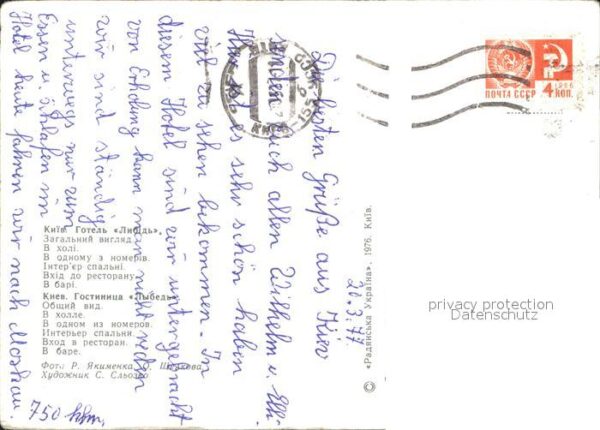 Die besten Grüße aus Kiev
senden Euch allen Wilhelm u. Elli.
Hier ist es sehr schön haben
viel zu sehen bekommen. In
diesem Hotel sind wir untergebracht
von Erholung kann man nicht reden
wir sind ständig
unterwegs nur zum
Essen u. schlafen im
Hotel heute fahren wir nach Moskau.
750 klm.
20.3.77.
Київ. Готель «Либідь».
Загальний вигляд.
В холі.
В одному з номерів.
Інтер'єр спальні.
Вхід до ресторану.
В барі.
Киев. Гостиница «Лыбедь».
Общий вид.
В холле.
В одном из номеров.
Интерьер спальни.
Вход в ресторан.
В баре.
Фото Р. Якименка,
Художник С.
© «Радянська Україна». 1976. Київ.
ПОЧТА СССР
1966
4 КОП.
privacy protection
Datenschutz